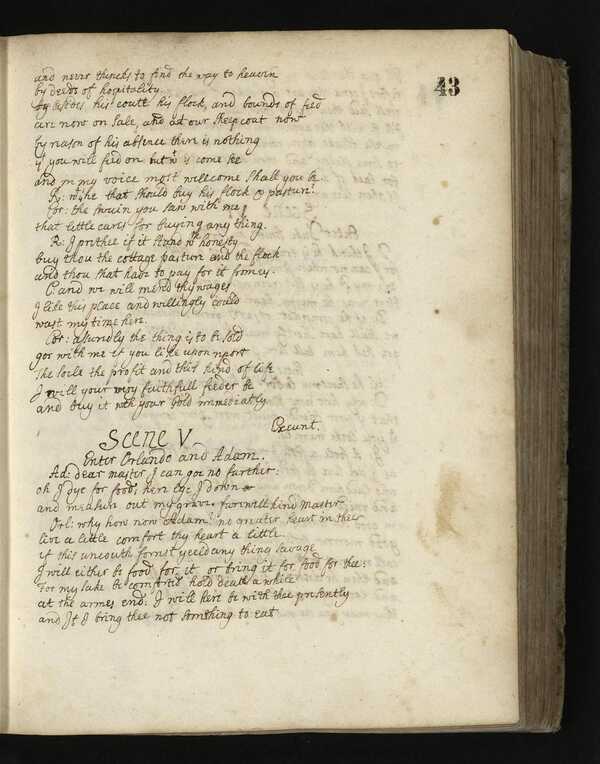 43
and never thincks to find the way to heaven
by deeds of hospitality.
besides his coate his flock, and bounds of feed
are now on sale, and at our sheepcoat now
by reason of his absence there is nothing
yt you will feed on but wt is come see
and in my voice most wellcome shall you be
Ry: wt he that should buy his flock & pasture?
Cor: the swain you saw with me
that little cares for buying any thing.
R: I prithee if it stand wth honesty
buy thou the cottage pasture and the flock
and thou shalt have to pay for it from us.
C: and we will mend thy wages
I like this place and willingly could
wast my time here.
Cor: assuredly the thing is to be sold
goe with me if you like upon report
the soile the profit and this kind of life
I will your very faithfull feeder be
and buy it with your gold immediatly
Exeunt.
Scene V
Enter Orlando and Adam.
Ad: dear master I can goe no further:
oh I dye for food, here lye I down
and measure out my grave, farewell kind master
Orl: why how now Adam? no greater heart in thee
live a little comfort thy heart a little.
if this uncouth forrest yeeld any thing savage
I will either be food for it or bring it for food for thee:
For my sake be comfortd hold death a while
at the armes end: I will here be with thee presently
and If I bring thee not something to eat